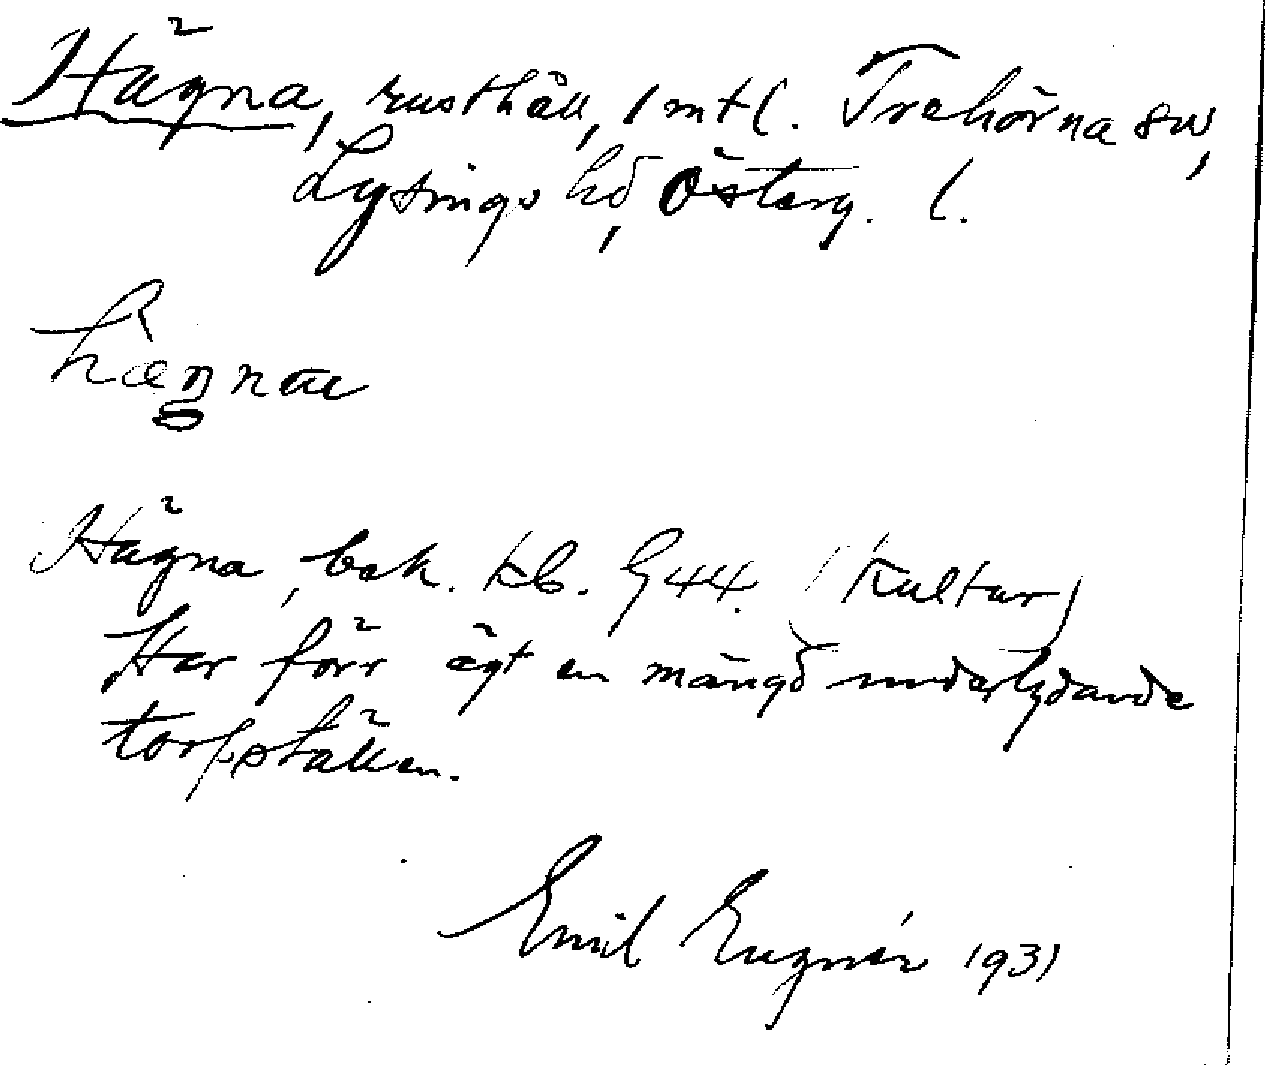 Hägna, rusthåll, 1 mtl. Trehörna sn,
Lysings hd, Österg. l.
Hägna, bek. kb. G44. (Kultur)
Har förr ägt en mängd underlydande
torpställen.
Emil Eugnér 1931